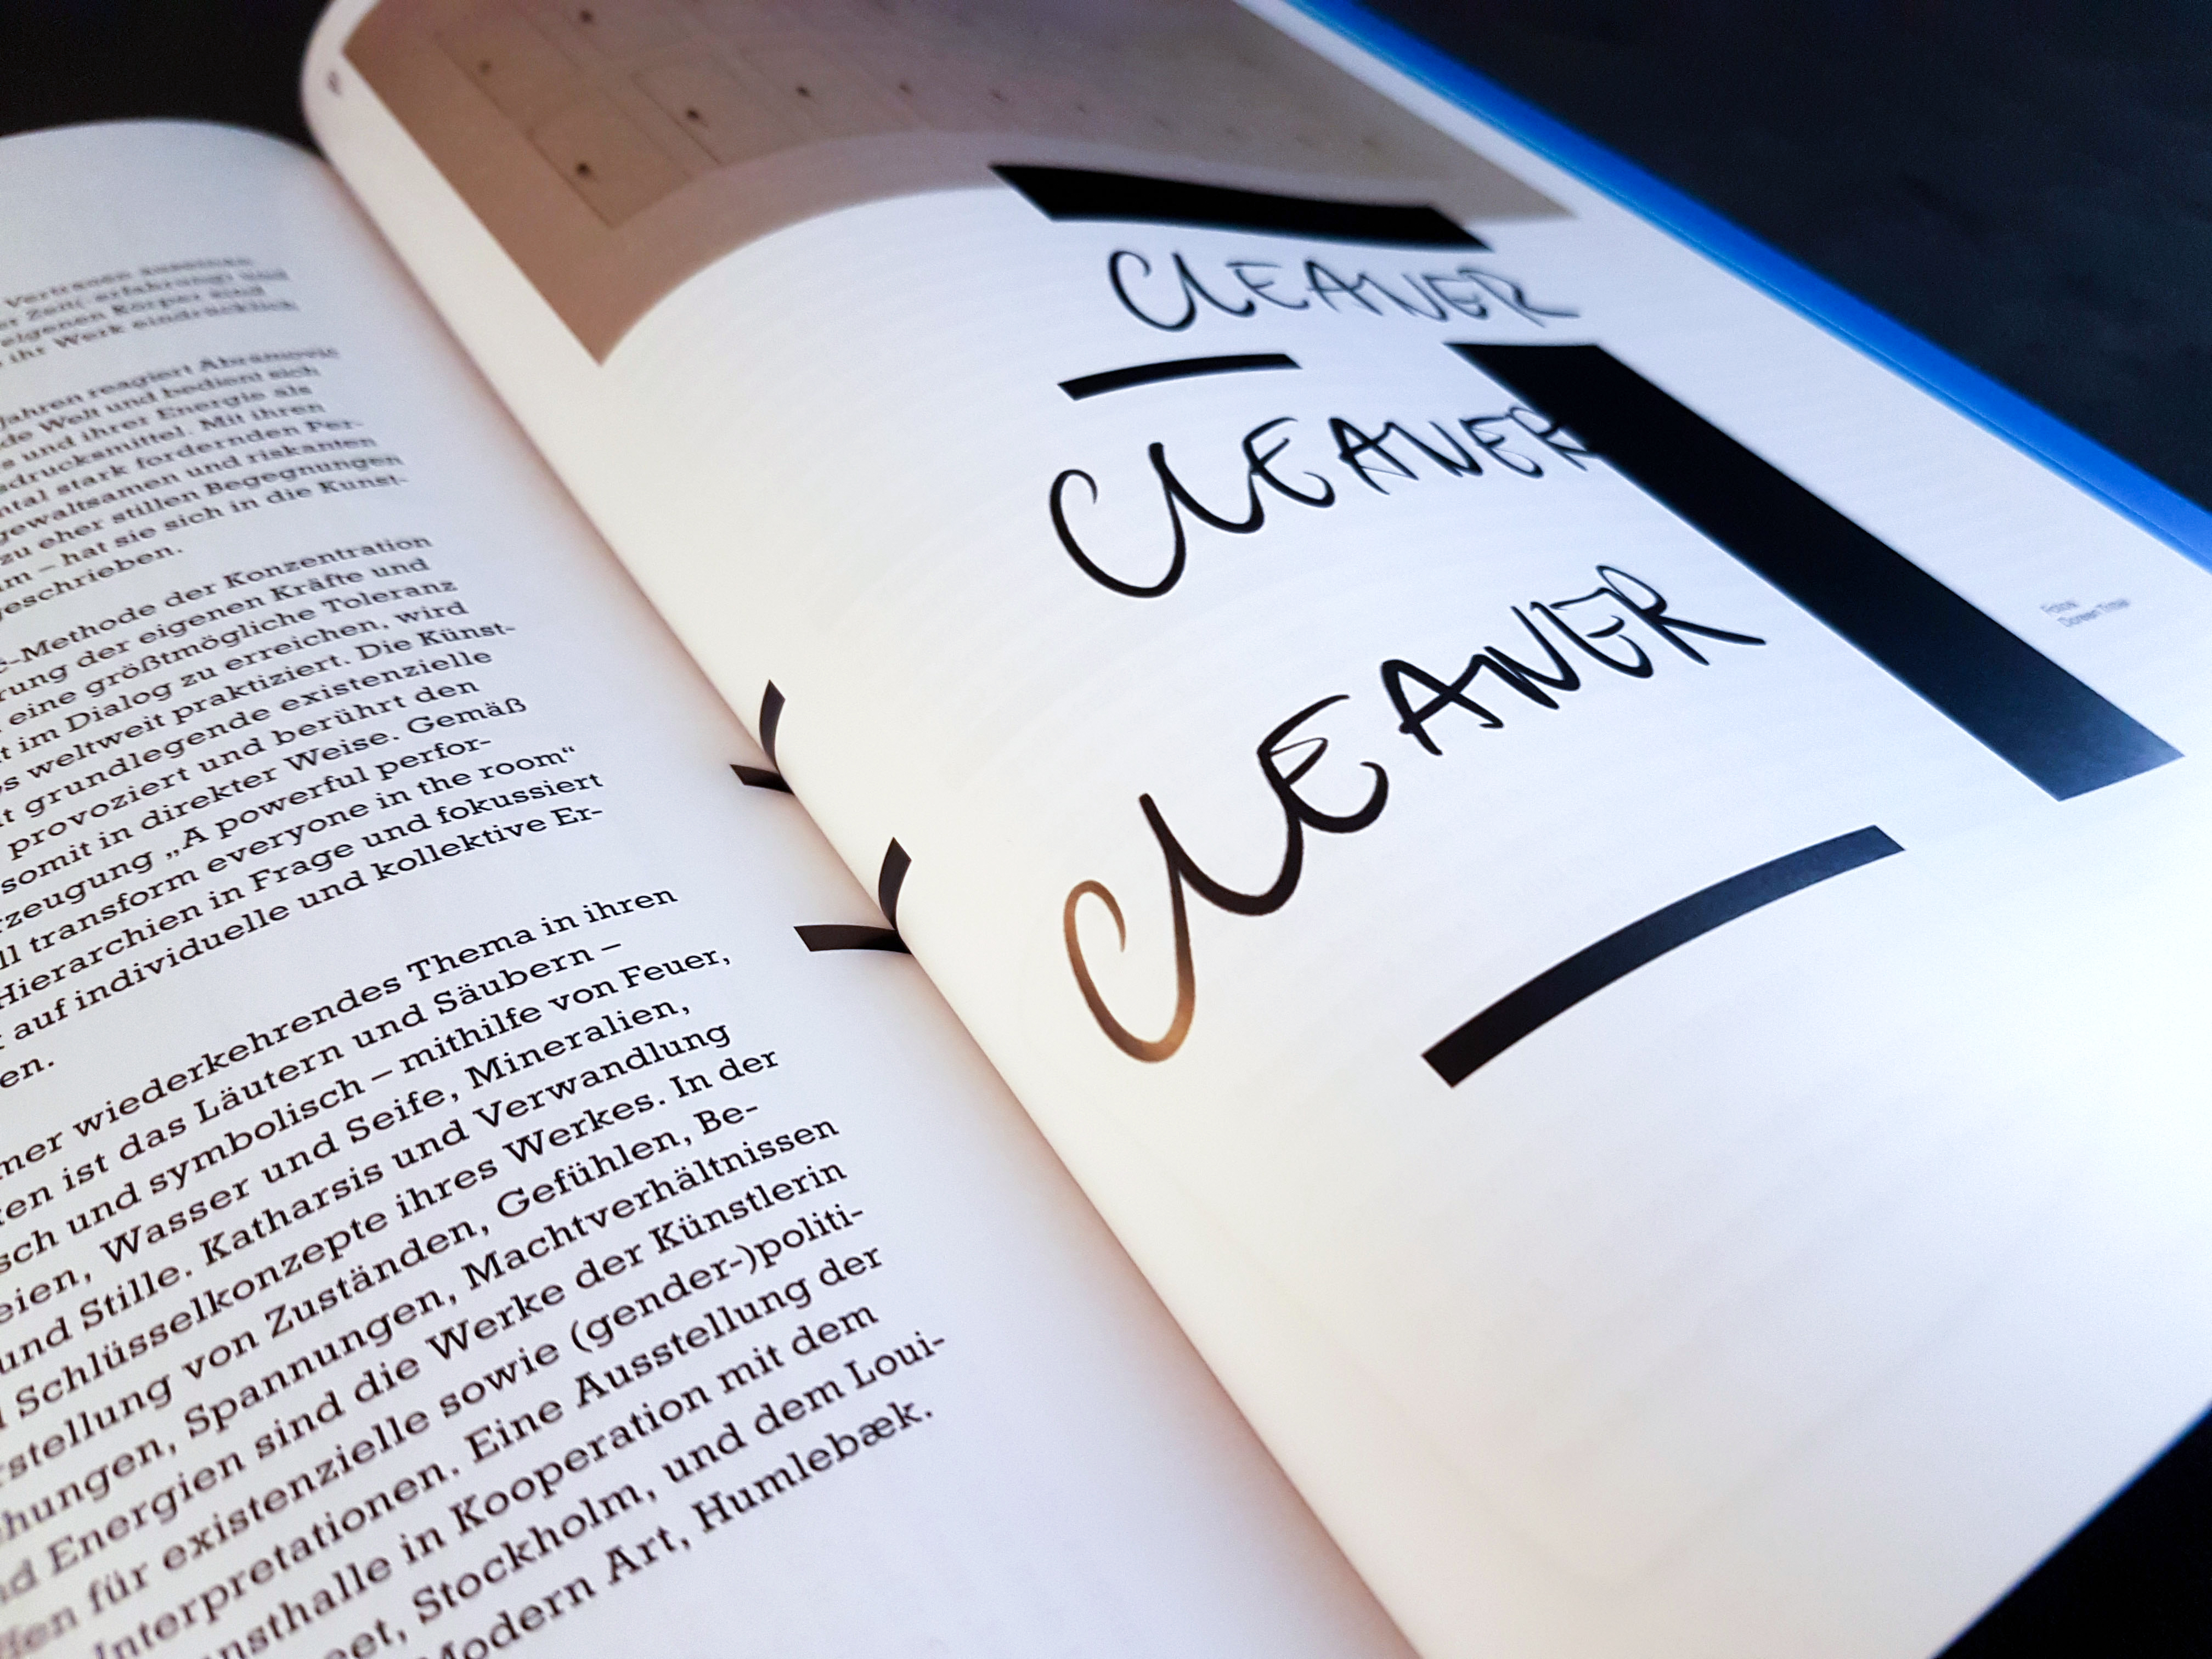 Vertrauen
er Zeit( erfahrung) und
eigenen Körper sind
ihr Werk eindrücklich
Jahren reagiert Abramović
de Welt und bedient sich
s und ihrer Energie als
sdrucksmittel. Mit ihren
ntal stark fordernden Per-
gewaltsamen und riskanten
zu eher stillen Begegnungen
m – hat sie sich in die Kunst-
geschrieben.
-Methode der Konzentration
rung der eigenen Kräfte und
eine größtmögliche Toleranz
t im Dialog zu erreichen, wird
s weltweit praktiziert. Die Künst-
t grundlegende existenzielle
provoziert und berührt den
somit in direkter Weise. Gemäß
rzeugung „A powerful perfor-
ll transform everyone in the room“
Hierarchien in Frage und fokussiert
auf individuelle und kollektive Er-
en.
mer wiederkehrendes Thema in ihren
ten ist das Läutern und Säubern –
sch und symbolisch – mithilfe von Feuer,
eien, Wasser und Seife, Mineralien,
und Stille. Katharsis und Verwandlung
Schlüsselkonzepte ihres Werkes. In der
rstellung von Zuständen, Gefühlen, Be-
hungen, Spannungen, Machtverhältnissen
nd Energien sind die Werke der Künstlerin
ffen für existenzielle sowie (gender-)politi-
Interpretationen. Eine Ausstellung der
nsthalle in Kooperation mit dem
eet, Stockholm, und dem Loui-
Modern Art, Humlebæk.
CLEANER
CLEANER
CLEANER